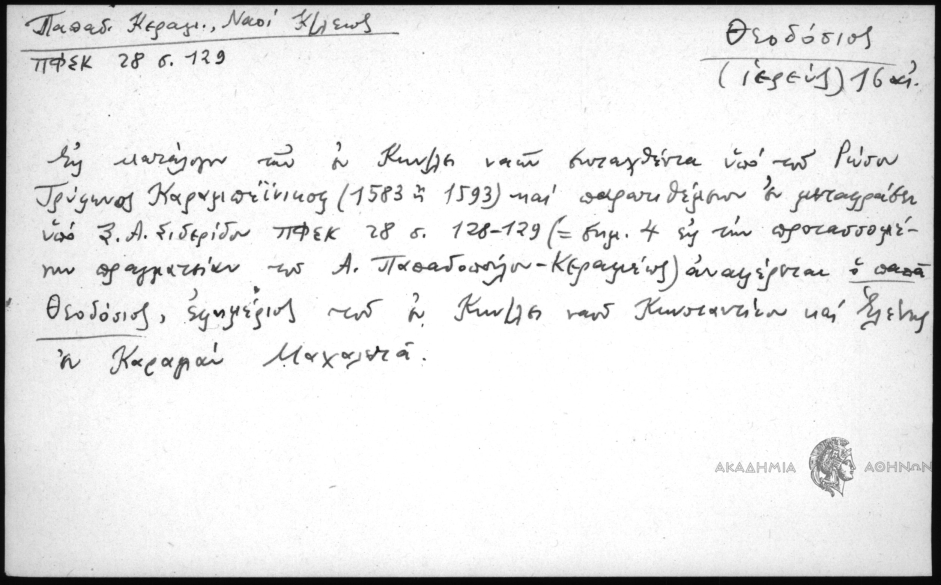 Παπαδ. Κεραμ., Ναοί Κ/λεως
ΠΦΣΚ 28 σ. 129
Θεοδόσιος
(ἱερεύς) 16 αἰ.
Εἰς κατάλογον τῶν ἐν Κων/λει ναῶν συνταχθέντα ὑπό τοῦ Ρώσου
Τρύφωνος Καραμπεΐνικος (1583 ἤ 1593) καί παρατιθέμενον ἐν μεταφράσει
ὑπό Ξ. Α. Σιδερίδου ΠΦΣΚ 28 σ. 128-129 (= σημ. 4 εἰς τήν προτασσομέ-
νην πραγματείαν τοῦ Α. Παπαδοπούλου-Κεραμέως) ἀναφέρεται ὁ παπᾶ
Θεοδόσιος, ἐφημέριος τοῦ ἐν Κων/λει ναοῦ Κωνσταντίνου καί Ἑλένης
ἐν Καραμάν Μαχαλεσᾶ.
ΑΚΑΔΗΜΙΑ ΑΘΗΝΩΝ